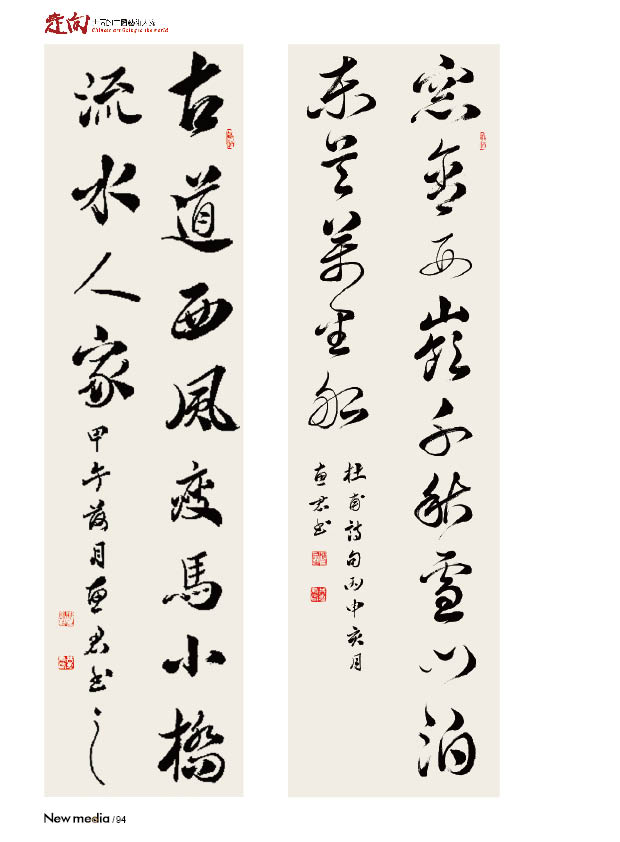 走向
Chinese art Going to the world
窓含西嶺千秋雪门泊
东吴萬里船
杜甫詩句丙申亥月
惠君书
古道西風瘦馬小橋
流水人家
甲午月惠君书之
New media / 94